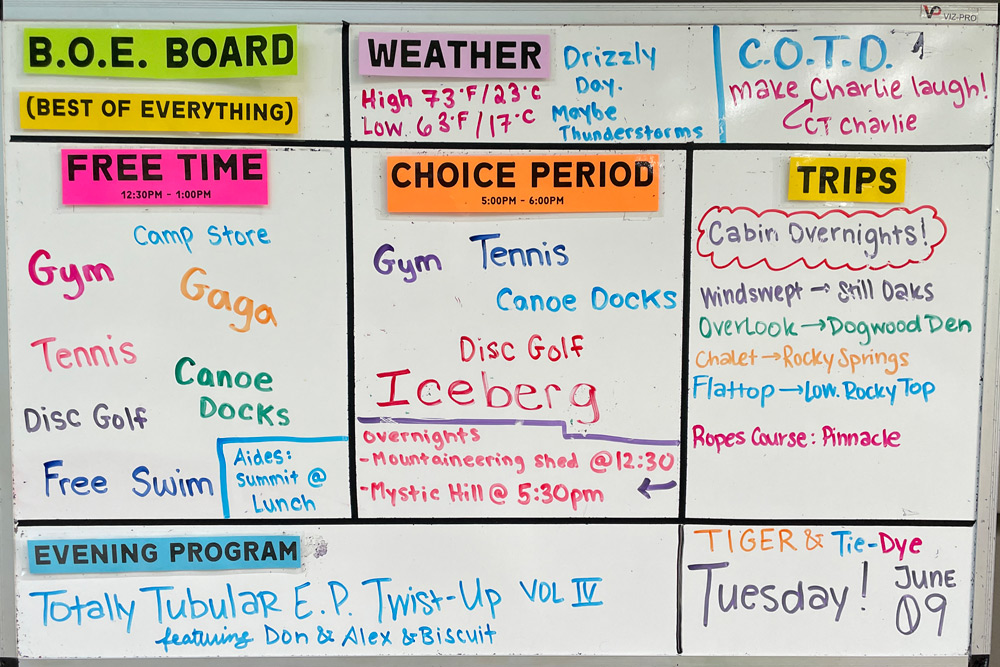 VIZ-PRO
B.O.E. BOARD
(BEST OF EVERYTHING)
WEATHER
High 73°F/23°C
Low 63°F/17°C
Drizzly
Day.
Maybe
Thunderstorms
C.O.T.D.
make Charlie laugh!
CT Charlie
FREE TIME
12:30PM - 1:00PM
Camp Store
Gym
Gaga
Tennis
Canoe
Docks
Disc Golf
Free Swim
Aides:
Summit @
Lunch
CHOICE PERIOD
5:00PM - 6:00PM
Gym
Tennis
Canoe Docks
Disc Golf
Iceberg
overnights
-Mountaineering shed @12:30
-Mystic Hill @ 5:30pm
TRIPS
Cabin Overnights!
Windswept → Still Oaks
Overlook → Dogwood Den
Chalet → Rocky Springs
Flattop → Low. Rocky Top
Ropes Course: Pinnacle
EVENING PROGRAM
Totally Tubular E.P. Twist-Up VOL IV
featuring Don & Alex & Biscuit
TIGER & Tie-Dye
Tuesday!
JUNE
09